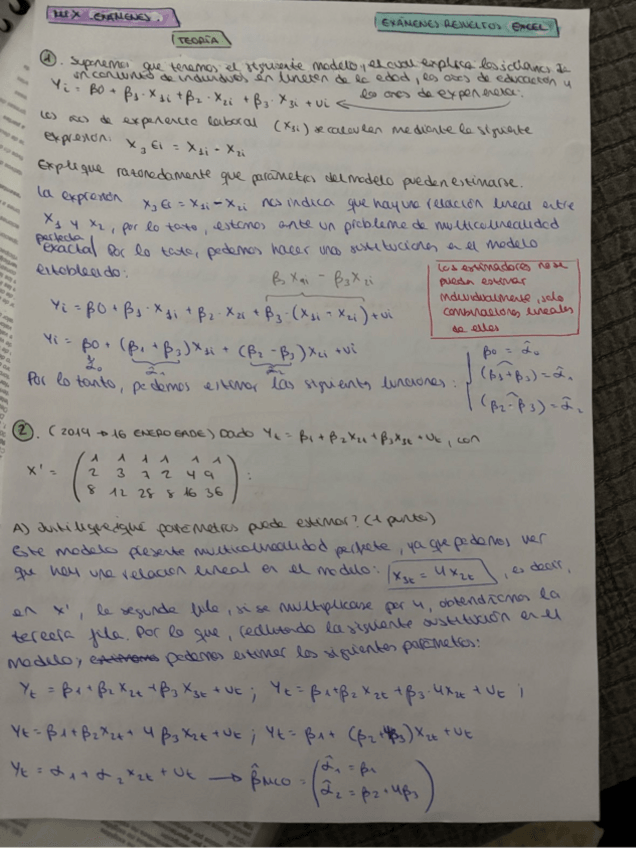 MIX EXÁMENES.
EXÁMENES RESUELTOS EXCEL
TEORÍA
1. Suponemos que tenemos el siguiente modelo, el cual explica los salarios de
un conjunto de individuos en función de la edad, los años de educación y
los años de experiencia:
Yi = β0 + β1·X1i + β2·X2i + β3·X3i + ui
Los años de experiencia laboral (X3i) se calculan mediante la siguiente
expresión: X3i = X1i - X2i
Explique razonadamente que parámetros del modelo pueden estimarse.
La expresión X3i = X1i - X2i nos indica que hay una relación lineal entre
X1 y X2, por lo tanto, estamos ante un problema de multicolinealidad
perfecta
exacta. Por lo tanto, podemos hacer una sustituciones en el modelo
establecido:
β3X1i - β3X2i
Los estimadores no se
pueden estimar
individualmente, solo
combinaciones lineales
de ellos
Yi = β0 + β1·X1i + β2·X2i + β3·(X1i - X2i) + ui
Yi = β0 + (β1+β3)X1i + (β2-β3)X2i + ui
α̂0 α̂1 α̂2
Por lo tanto, podemos estimar las siguientes funciones:
β0 = α̂0
(β1+β3) = α̂1
(β2-β3) = α̂2
2. (2019 → 16 ENERO GADE) Dado Yt = β1 + β2X2t + β3X3t + Ut, con
X' = ( 1 1 1 1 1 1
2 3 7 2 4 9
8 12 28 8 16 36 ) :
A) Justifique ¿qué parámetros puede estimar? (1 punto)
Este modelo presenta multicolinealidad perfecta, ya que podemos ver
que hay una relación lineal en el modelo: X3t = 4X2t, es decir,
en X', la segunda fila, si se multiplicase por 4, obtendríamos la
tercera fila. Por lo que, realizando la siguiente sustitución en el
modelo, podemos estimar los siguientes parámetros:
Yt = β1 + β2X2t + β3X3t + Ut ; Yt = β1 + β2X2t + β3·4X2t + Ut ;
Yt = β1 + β2X2t + 4β3X2t + Ut ; Yt = β1 + (β2+4β3)X2t + Ut
Yt = α1 + α2X2t + Ut → β̂MCO = ( α̂1 = β1
α̂2 = β2 + 4β3 )